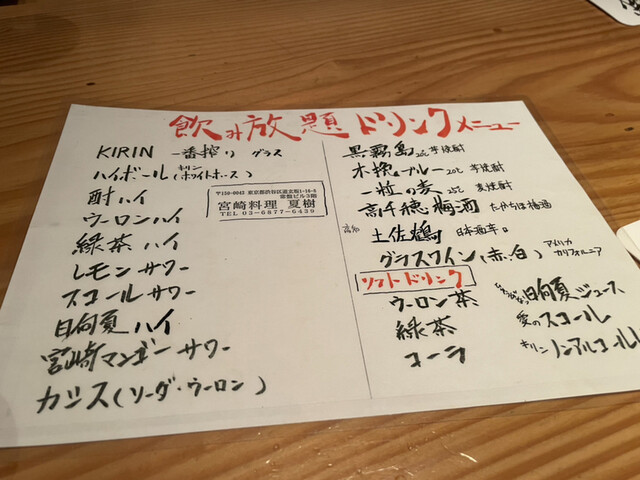 飲み放題ドリンクメニュー
KIRIN 一番搾り グラス
ハイボール(キリン ホワイトホース)
酎ハイ
ウーロンハイ
緑茶ハイ
レモンサワー
スコールサワー
日向夏ハイ
宮崎マンゴーサワー
カシス(ソーダ・ウーロン)
〒150-0042 東京都渋谷区
宮崎料理 夏樹
TEL 03-6877-6439
黒霧島 芋焼酎
木挽ブルー 芋焼酎
一粒の麦 麦焼酎
高千穂梅酒 たかちほ梅酒
高知 土佐鶴 日本酒辛口
グラスワイン(赤、白) アメリカ カリフォルニア
ソフトドリンク
ウーロン茶
緑茶
コーラ
日向夏ジュース
愛のスコール
キリン ノンアルコール